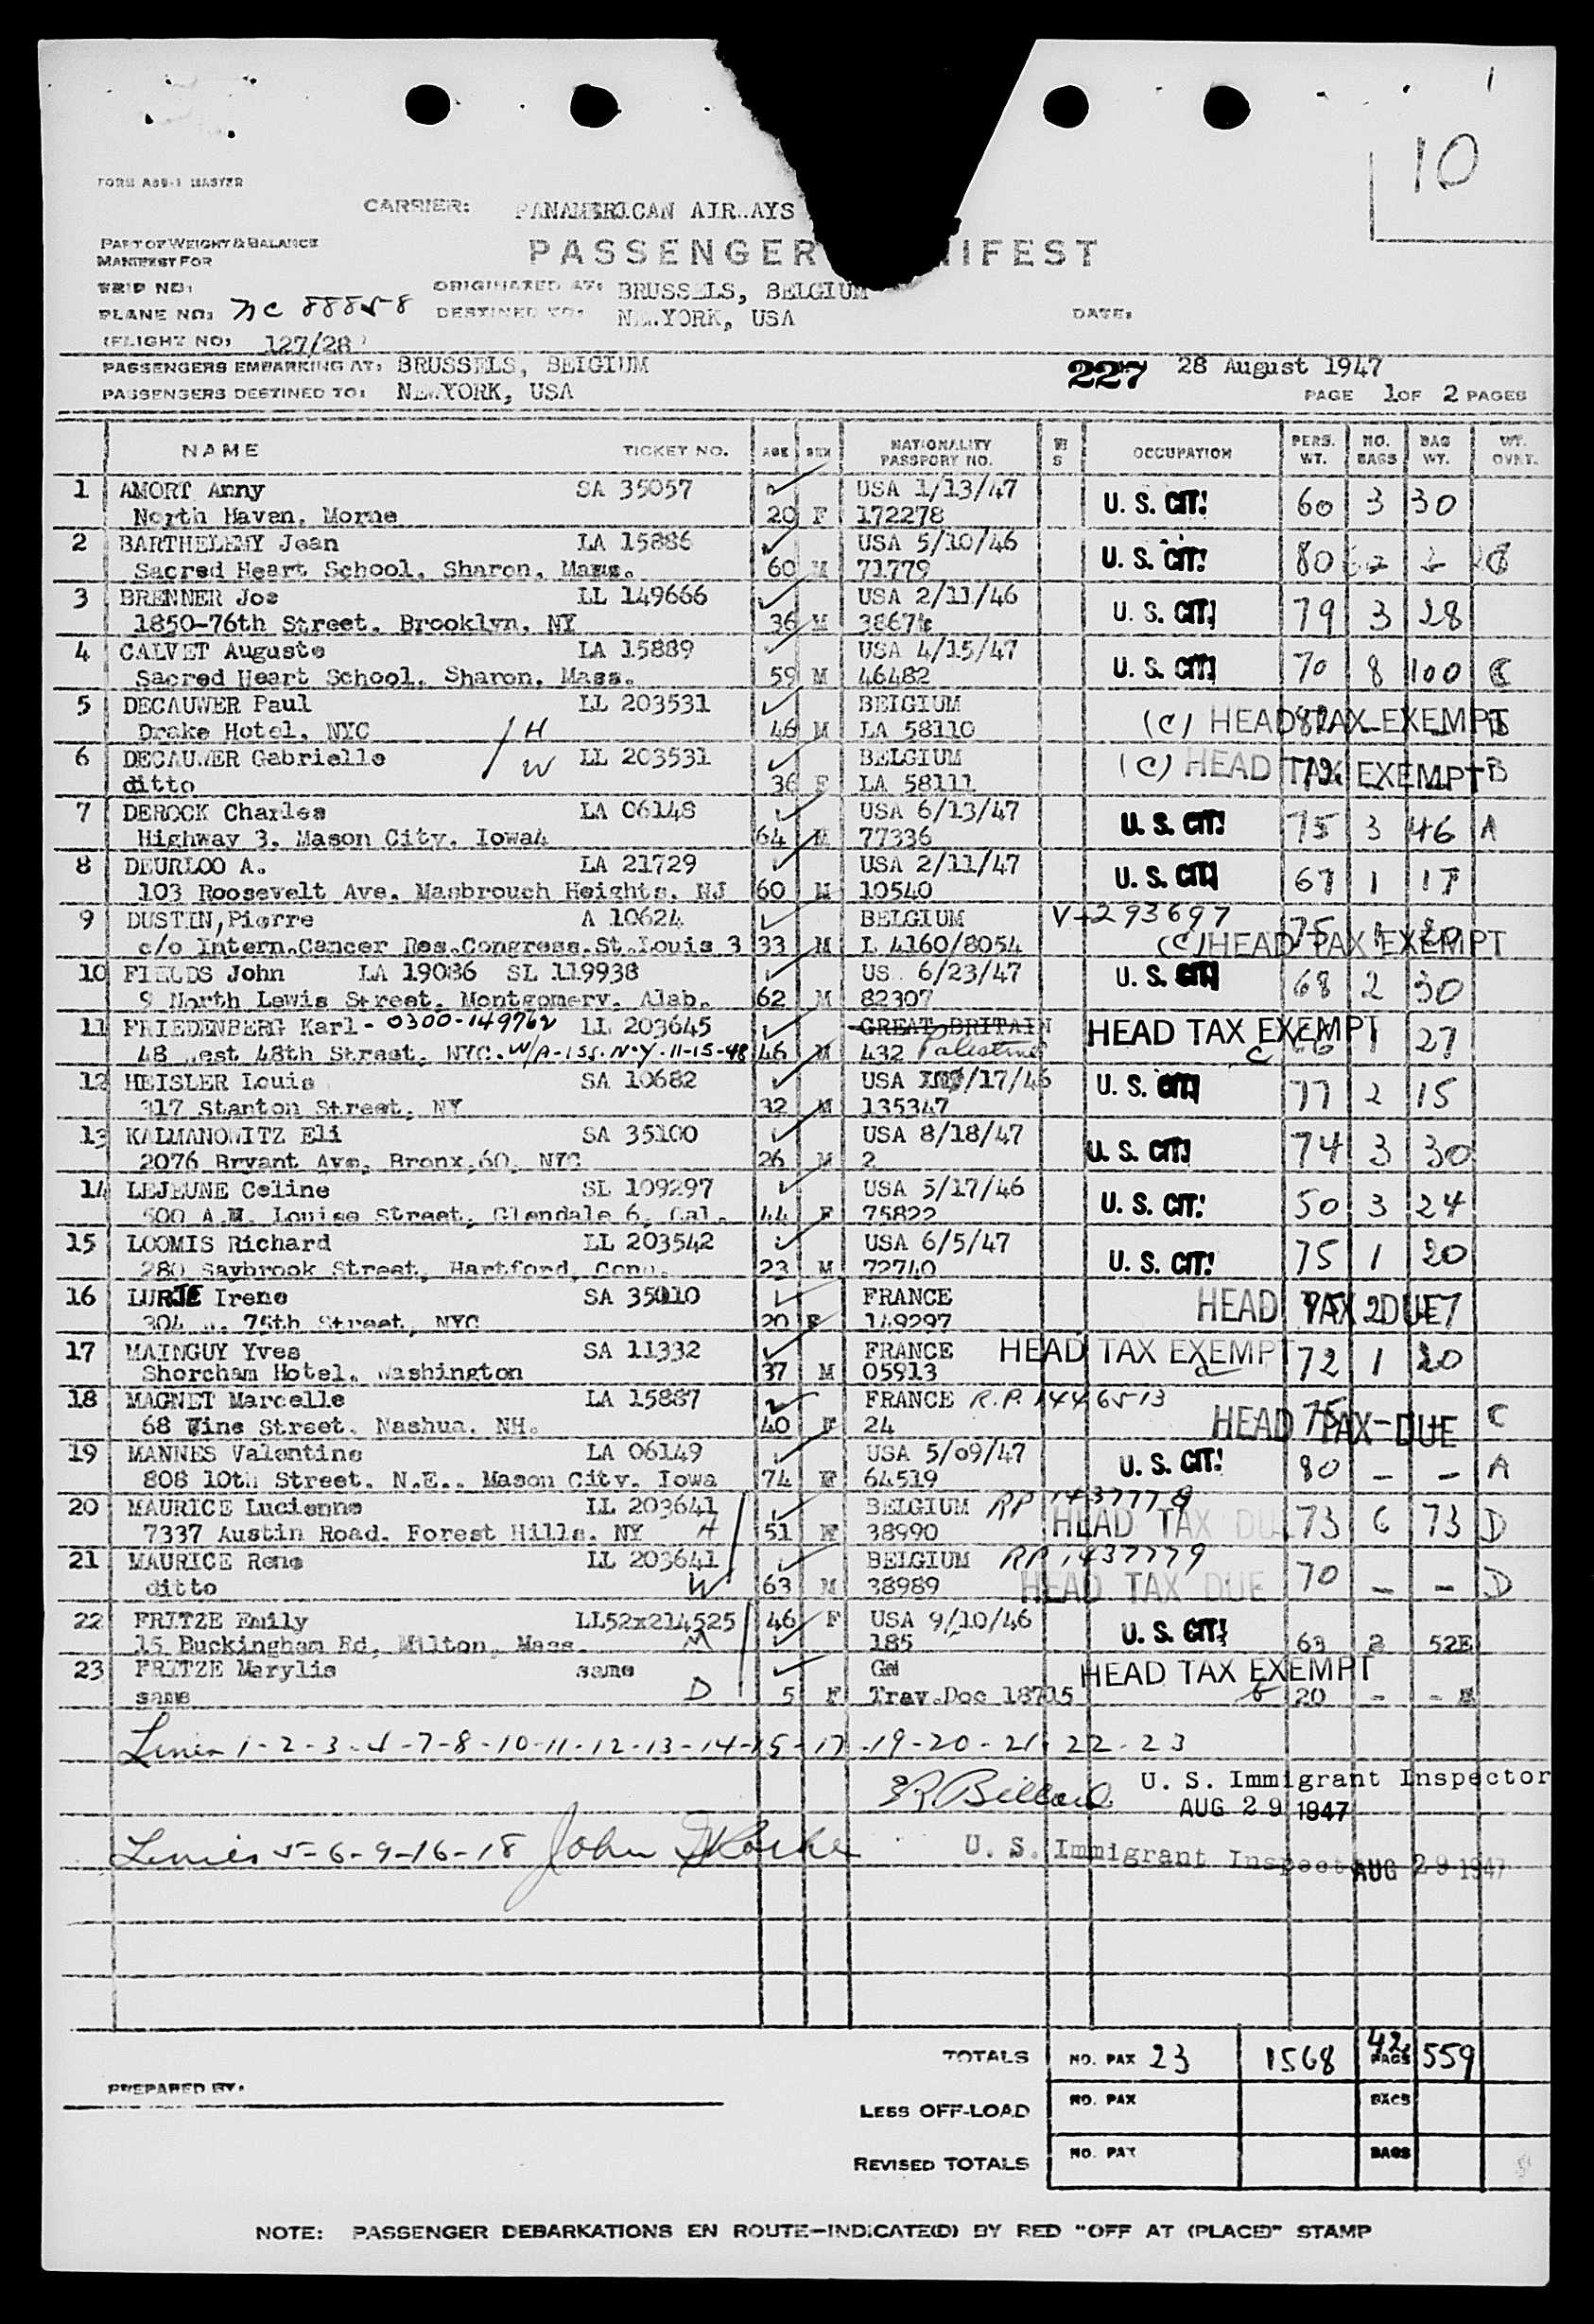 1
10
FORM A89-1 MASTER
CARRIER: PANAMERICAN AIR..AYS
PART OF WEIGHT & BALANCE
MANIFEST FOR
PASSENGER NIFEST
TRIP NO:
ORIGINATED AT: BRUSSELS, BELGIUM
PLANE NO: NC 88858
DESTINED TO: NEW YORK, USA
DATE:
(FLIGHT NO: 127/28)
PASSENGERS EMBARKING AT: BRUSSELS, BELGIUM
227 28 August 1947
PASSENGERS DESTINED TO: NEW YORK, USA
PAGE 1 OF 2 PAGES
NAME TICKET NO. AGE SEX NATIONALITY PASSPORT NO. OCCUPATION PERS. WT. NO. BAGS BAG WT. WT. OVNT.
1 AMORT Anny SA 35057 USA 1/13/47 U. S. CIT! 60 3 30
North Haven, Morne 20 F 172278
2 BARTHELEMY Jean LA 15886 USA 5/10/46 U. S. CIT! 80
Sacred Heart School, Sharon, Mass. 60 M 71779
3 BRENNER Joe LL 149666 USA 2/11/46 U. S. CIT! 79 3 28
1850-76th Street, Brooklyn, NY 36 M
4 CALVET Auguste LA 15889 USA 4/15/47 U. S. CIT! 70 8 100 C
Sacred Heart School, Sharon, Mass. 59 M 46482
5 DECAUWER Paul LL 203531 BELGIUM (C) HEAD TAX EXEMPT
Drake Hotel, NYC H 46 M LA 58110
6 DECAUWER Gabrielle W LL 203531 BELGIUM (C) HEAD TAX EXEMPT B
ditto 36 F LA 58111
7 DEROCK Charles LA 06148 USA 6/13/47 U. S. CIT! 75 3 46 A
Highway 3, Mason City, Iowa 64 M 77336
8 DEURLOO A. LA 21729 USA 2/11/47 U. S. CIT! 67 1 17
103 Roosevelt Ave. Masbrouch Heights, NJ 60 M 10540
9 DUSTIN, Pierre A 10624 BELGIUM V-293697 75
c/o Intern.Cancer Res.Congress.St.Louis 3 33 M L 4160/8054 (C) HEAD TAX EXEMPT
10 FIELDS John LA 19086 SL 119938 US. 6/23/47 U. S. CIT! 68 2 30
9 North Lewis Street, Montgomery, Alab. 62 M 82307
11 FRIEDENBERG Karl - 0300-149762 LL 203645 GREAT BRITAIN HEAD TAX EXEMPT 1 27
48 West 48th Street, NYC. W/A-155.N.Y.11-15-48 46 M 432 Palestine C
12 HEISLER Louis SA 10682 USA /17/46 U. S. CIT! 77 2 15
317 Stanton Street, NY 32 M 135347
13 KALMANOWITZ Eli SA 35100 USA 8/18/47 U. S. CIT! 74 3 30
2076 Bryant Ave, Bronx,60, NYC 26 M 2
14 LEJEUNE Celine SL 109297 USA 5/17/46 U. S. CIT! 50 3 24
500 A.M. Louise Street, Glendale 6, Cal. 44 F 75822
15 LOOMIS Richard LL 203542 USA 6/5/47 U. S. CIT! 75 1 20
280 Saybrook Street, Hartford, Conn. 23 M 72740
16 LURIE Irene SA 35010 FRANCE HEAD TAX DUE
304 W. 75th Street, NYC 20 F 149297
17 MAINGUY Yves SA 11332 FRANCE HEAD TAX EXEMPT 72 1 20
Shorcham Hotel, Washington 37 M 05913
18 MAGNET Marcelle LA 15887 FRANCE R.P. 1446513 HEAD TAX-DUE C
68 Vine Street, Nashua, NH. 40 F 24
19 MANNES Valentine LA 06149 USA 5/09/47 U. S. CIT! 80 - - A
808 10th Street, N.E., Mason City, Iowa 74 F 64519
20 MAURICE Lucienne LL 203641 BELGIUM RP 1437778 HEAD TAX DUE 73 6 73 D
7337 Austin Road, Forest Hills, NY H 51 F 38990
21 MAURICE Rene LL 203641 BELGIUM RP 1437779 HEAD TAX DUE 70 - - D
ditto W 63 M 38989
22 FRITZE Emily LL52x214525 46 F USA 9/10/46 U. S. CIT! 63 2 52E
15 Buckingham Rd, Milton, Mass. M 185
23 FRITZE Marylis same HEAD TAX EXEMPT
same D 5 F Trav.Doc 18715 20 - - E
Lines 1-2-3-4-7-8-10-11-12-13-14-15-17-19-20-21-22-23
U. S. Immigrant Inspector
AUG 29 1947
Lines 5-6-9-16-18 John
U. S. Immigrant Inspector AUG 29 1947
TOTALS NO. PAX 23 1568 42 BAGS 559
PREPARED BY:
LESS OFF-LOAD NO. PAX BAGS
REVISED TOTALS NO. PAX BAGS
NOTE: PASSENGER DEBARKATIONS EN ROUTE—INDICATE(D) BY RED "OFF AT (PLACE)" STAMP